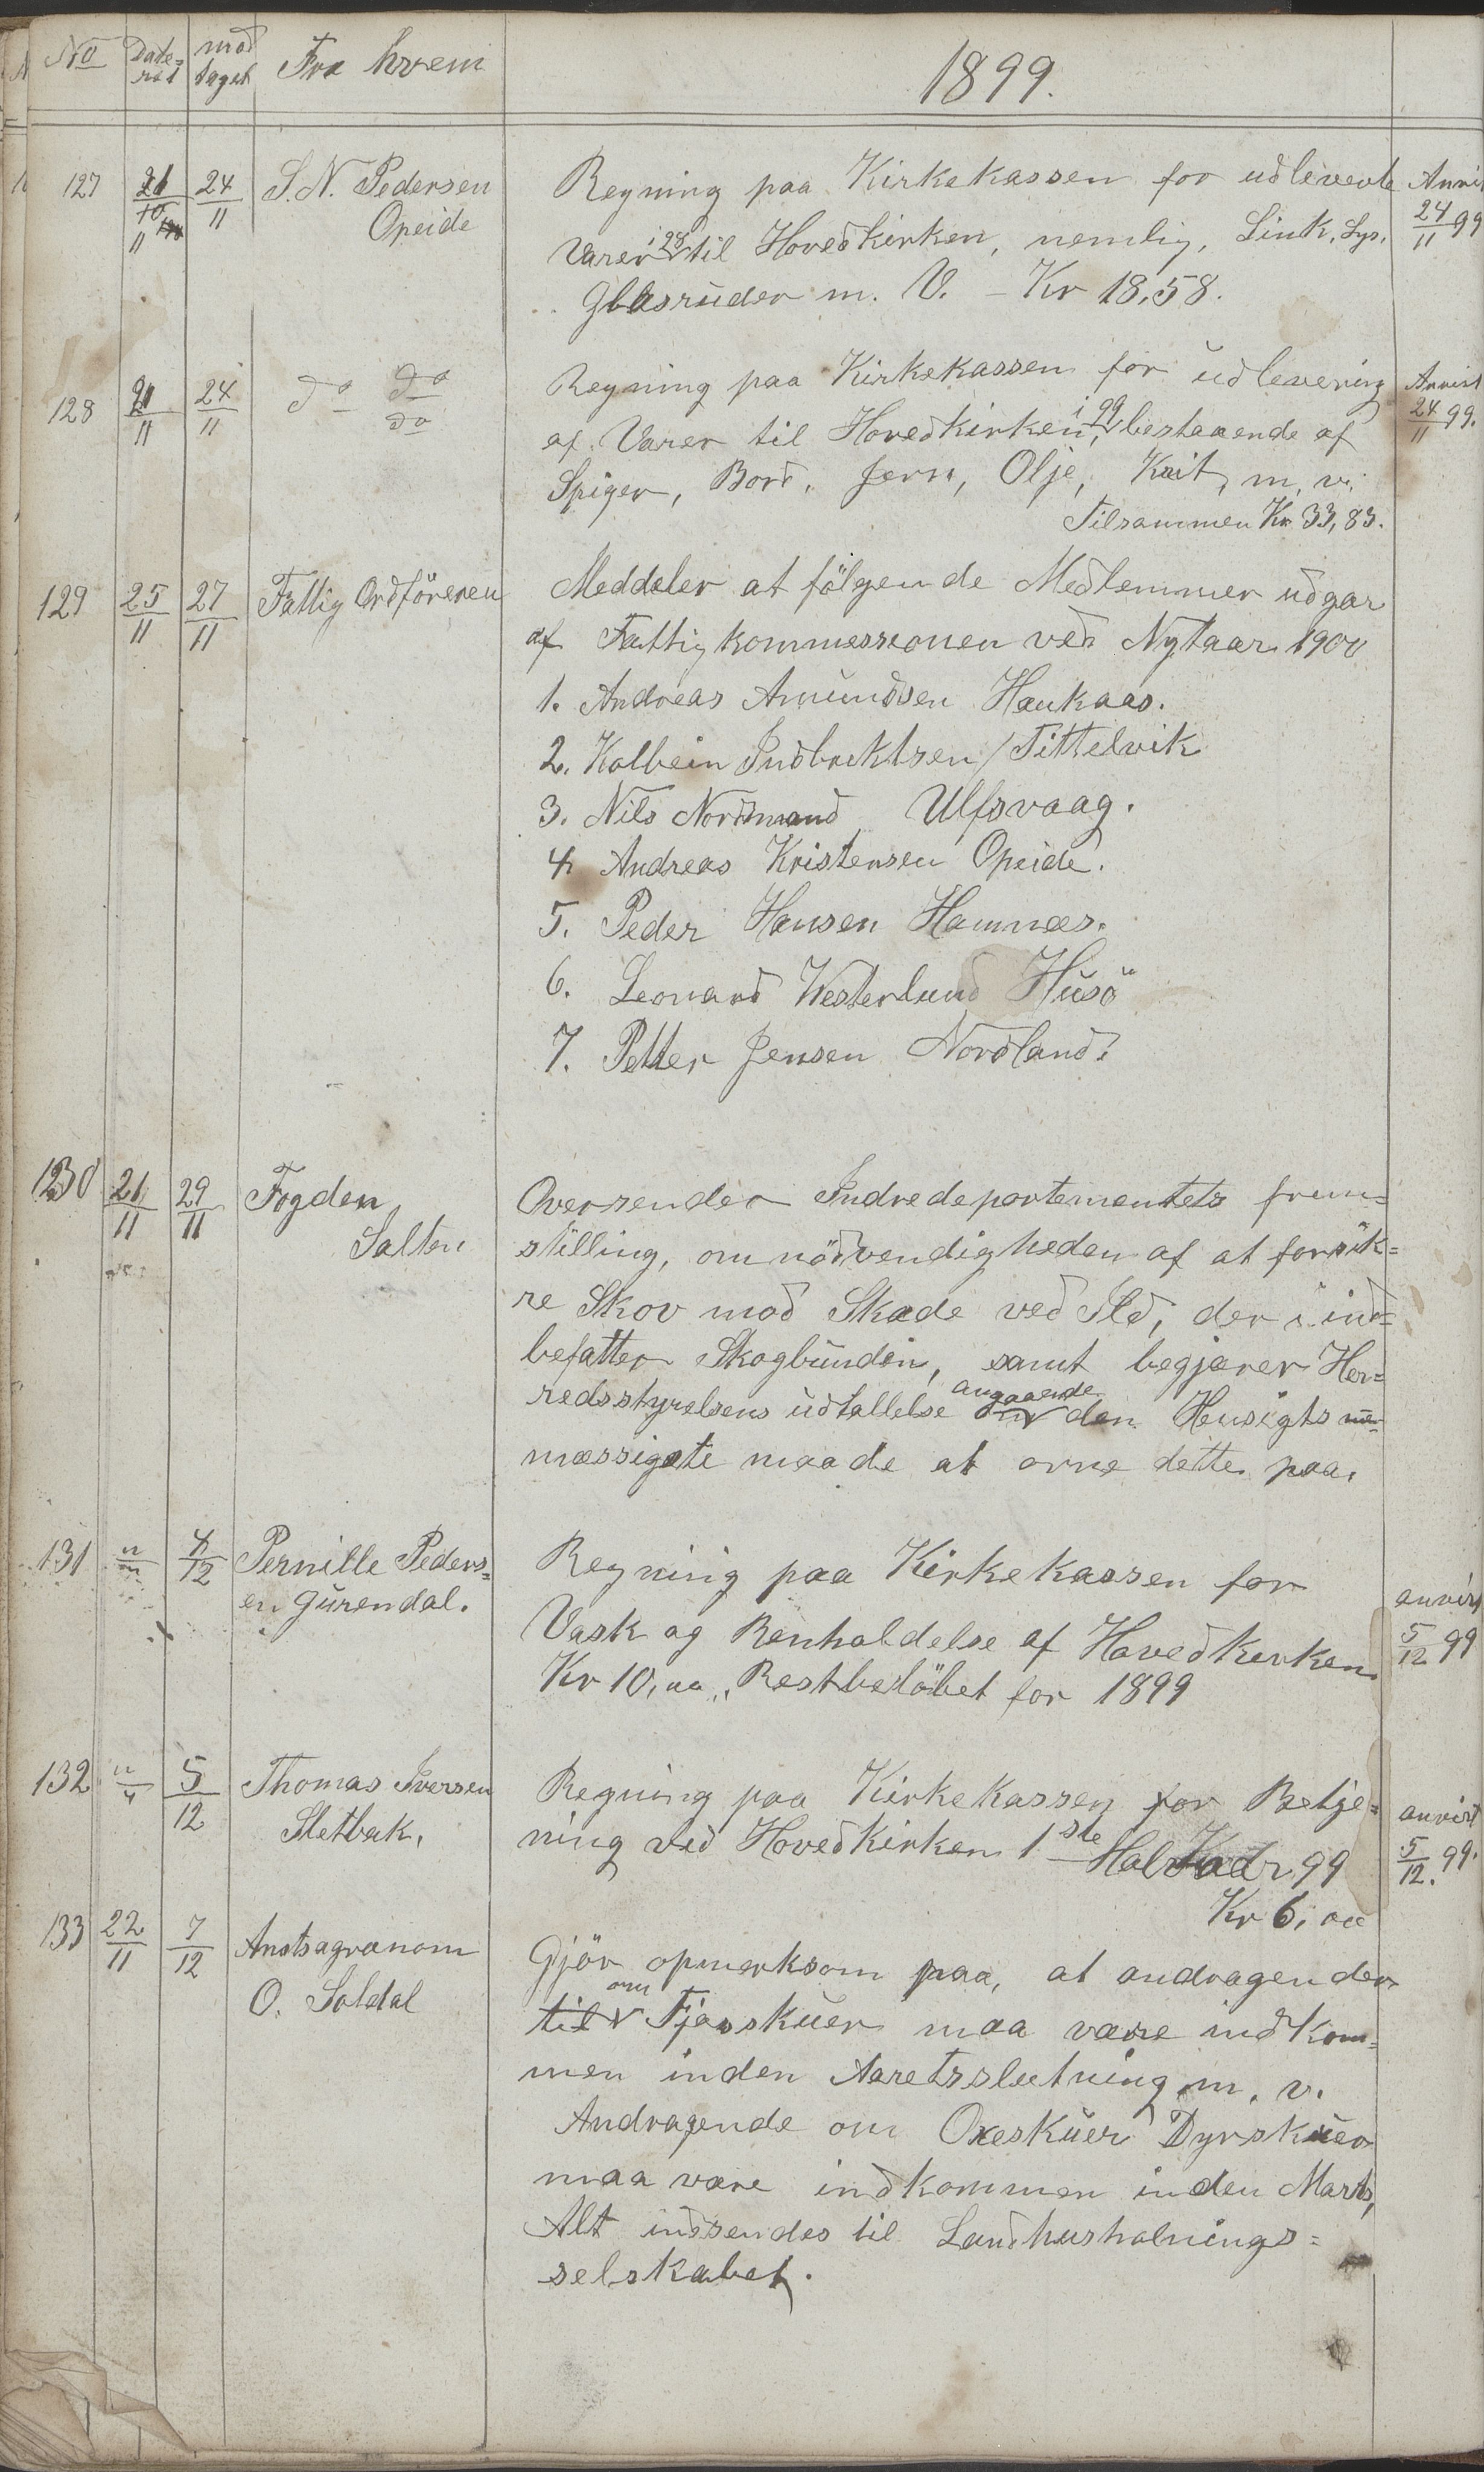 No Date= ret mod taget Fra hvem 1899.
127 21/11 24/11 S. N. Pedersen Regning paa Kirkekassen for udleverte Anvist
Opeide Varer i 98 til Hovedkirken, nemlig, Sink, Lys, 24/11 99
Glasruder m. V. – Kr 18,58.
128 21/11 24/11 do do Regning paa Kirkekassen for udlevering Anvist
do af Varer til Hovedkirken i 99, bestaaende af 24/11 99.
Spiger, Bord, Jern, Olje, Krit, m, v.
Tilsammen Kr 33,83.
129 25/11 27/11 Fattig Ordföreren Meddeler at fölgende Medlemmer udgar
af Fattigkommessionen ved Nytaar 1900
1. Andreas Amundsen Haukaas.
2. Kolbein Indbrektsen / Tittelvik
3. Nils Nordmand Ulfsvaag.
4 Andreas Kristensen Opeide.
5. Peder Hansen Hamnes.
6. Leonard Westerlund Husö
7. Petter Jensen Nordland.
130 21/11 29/11 Fogden Oversender Indredepartementets frem=
Salten stilling, om nödvendigheden af at forsik=
re Skov mod Skade ved Ild, der i ind=
befatter Skogbunden, samt begjærer Her=
redsstyrelsens udtallelse angaaende den Hensigts
mæssigste maade at orne dette paa.
131 " 4/12 Pernille Peders= Regning paa Kirkekassen for
en Gurendal. Vask og Renholdelse af Hovedkirken anvist 5/12 99
Kr 10,00, Restbelöbet for 1899
132 " 5/12 Thomas Iversen Regning paa Kirkekassen for Betje= anvist
Sletbak, ning ved Hovedkirken 1ste Halvadr 99 5/12. 99.
Kr 6,00
133 22/11 7/12 Amtsagronom Gjör opmerksom paa, at andragender
O. Soldal til om Fjosskuer maa være indkom=
men inden Aaretsslutning m. v.
Andragende om Oxeskuer Dyrskuer
maa være indkommen inden Marts,
Alt indsendes til Landhusholnings=
selskabet.